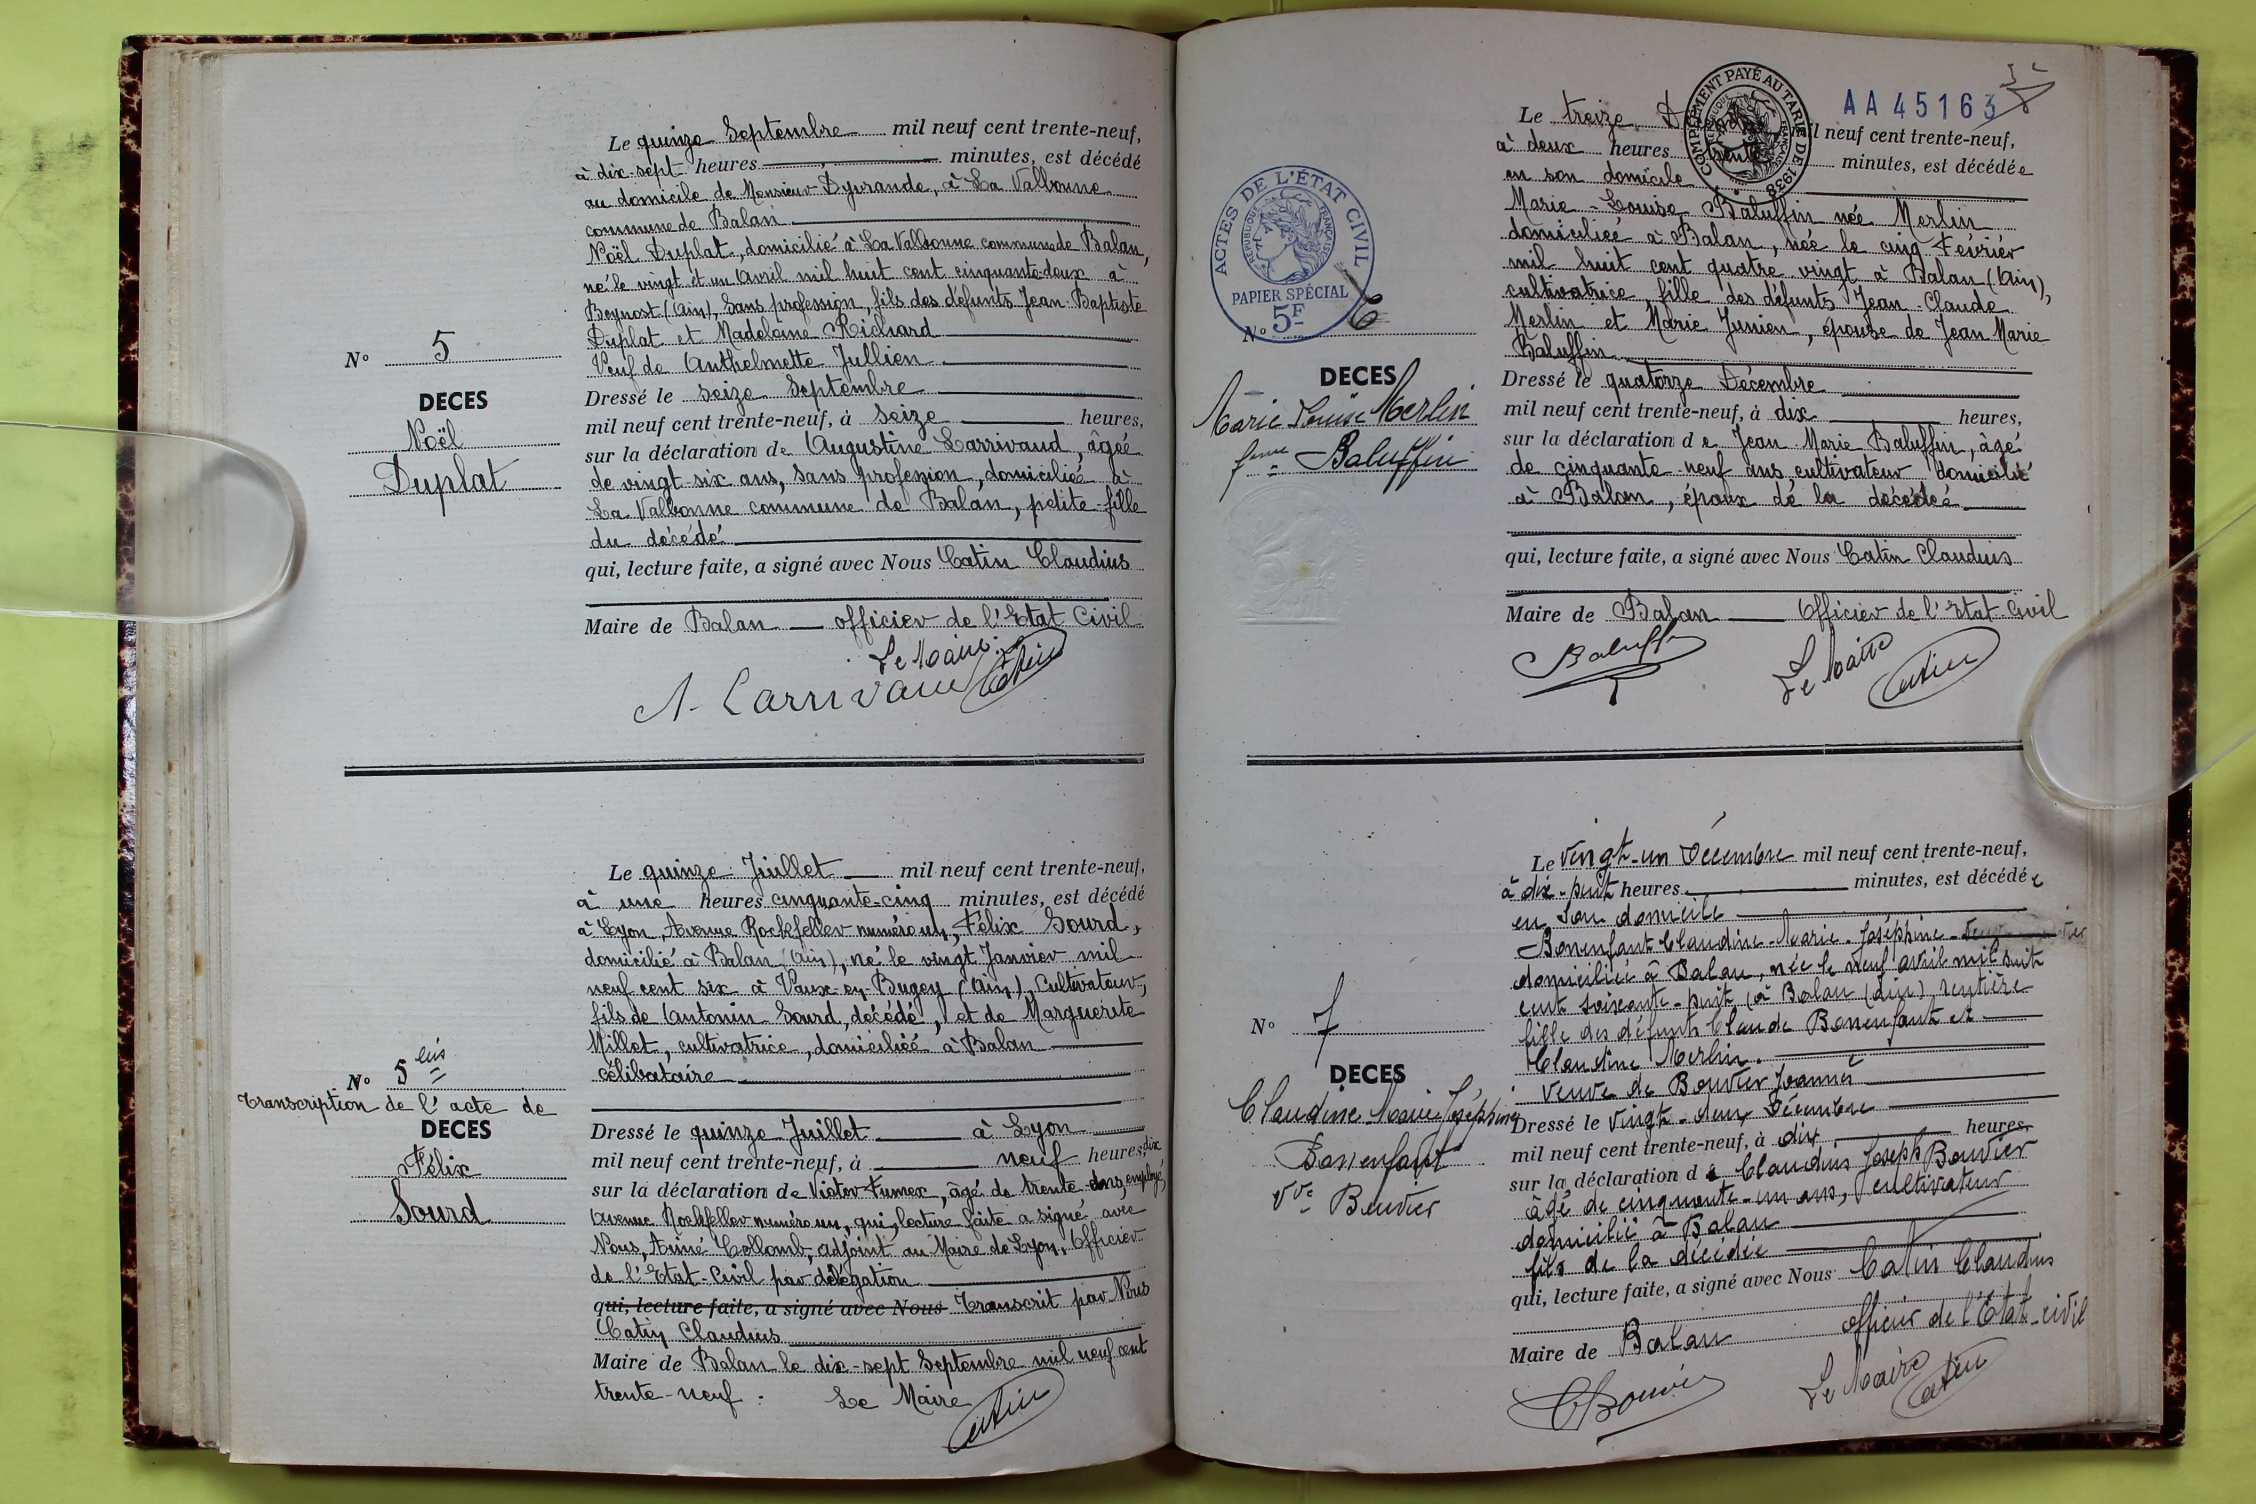 Le quinze Septembre mil neuf cent trente-neuf,
à dix-sept heures minutes, est décédé
au domicile de Monsieur Dyurande, à La Valbonne
commune de Balan
Noël Duplat, domicilié à La Valbonne commune de Balan,
né le vingt et un Avril mil huit cent cinquante-deux à
Beynost (Ain), sans profession, fils des défunts Jean-Baptiste
Duplat et Madeleine Richard
Veuf de Anthelmette Jullien
Dressé le seize Septembre
mil neuf cent trente-neuf, à seize heures,
sur la déclaration de Augustine Larrivaud, âgée
de vingt-six ans, sans profession, domiciliée à
La Valbonne commune de Balan, petite-fille
du décédé
qui, lecture faite, a signé avec Nous Catin Claudius
Maire de Balan officier de l'Etat Civil
Le Maire
A. Larrivaud Catin
N° 5
DECES
Noël
Duplat
Le quinze Juillet mil neuf cent trente-neuf,
à une heures cinquante-cinq minutes, est décédé
à Lyon, Avenue Rockfeller numéro un, Félix Sourd,
domicilié à Balan (Ain), né le vingt Janvier mil
neuf cent six à Vaux-en-Bugey (Ain), Cultivateur,
fils de Antonin Sourd, décédé, et de Marguerite
Millet, cultivatrice, domiciliée à Balan
célibataire
Dressé le quinze Juillet à Lyon
mil neuf cent trente-neuf, à neuf heures, dix
sur la déclaration de Victor Fumex, âgé de trente ans, employé,
Avenue Rockfeller numéro un, qui, lecture faite a signé avec
Nous, Aimé Collomb, adjoint au Maire de Lyon, Officier
de l'Etat-Civil par délégation
qui, lecture faite, a signé avec Nous Transcrit par Nous
Catin Claudius
Maire de Balan le dix-sept Septembre mil neuf cent
trente-neuf. Le Maire
Catin
N° 5 bis
Transcription de l'acte de
DECES
Félix
Sourd
AA 45163
COMPLÉMENT PAYÉ AU TARIF DE 1938
RÉPUBLIQUE FRANÇAISE
Le treize mil neuf cent trente-neuf,
à deux heures trente minutes, est décédée
en son domicile
Marie-Louise Baluffin née Merlin
domiciliée à Balan, née le cinq Février
mil huit cent quatre vingt à Balan (Ain),
cultivatrice, fille des défunts Jean-Claude
Merlin et Marie Junien, épouse de Jean Marie
Baluffin
Dressé le quatorze Décembre
mil neuf cent trente-neuf, à dix heures,
sur la déclaration de Jean Marie Baluffin, âgé
de cinquante-neuf ans, cultivateur domicilié
à Balan, époux de la décédée
qui, lecture faite, a signé avec Nous Catin Claudius
Maire de Balan Officier de l'Etat-Civil
Baluffin Le Maire Catin
ACTES DE L'ÉTAT CIVIL
RÉPUBLIQUE FRANÇAISE
PAPIER SPÉCIAL
5F
N° 6
DECES
Marie Louise Merlin
femme Baluffin
Le vingt-un Décembre mil neuf cent trente-neuf,
à dix-huit heures minutes, est décédée
en son domicile
Bonenfant Claudine-Marie-Joséphine
domiciliée à Balan, née le neuf avril mil huit
cent soixante-huit (à Balan (Ain), rentière
fille des défunts Claude Bonenfant et
Claudine Merlin.
Veuve de Bouvier Joannè
Dressé le vingt-deux Décembre
mil neuf cent trente-neuf, à dix heures,
sur la déclaration de Claudius Joseph Bouvier
âgé de cinquante-un ans, cultivateur
domicilié à Balan
fils de la décédée
qui, lecture faite, a signé avec Nous Catin Claudius
Maire de Balan officier de l'Etat-civil
CBouvier Le Maire Catin
N° 7
DECES
Claudine Marie Joséphine
Bonenfant
Vve Bouvier